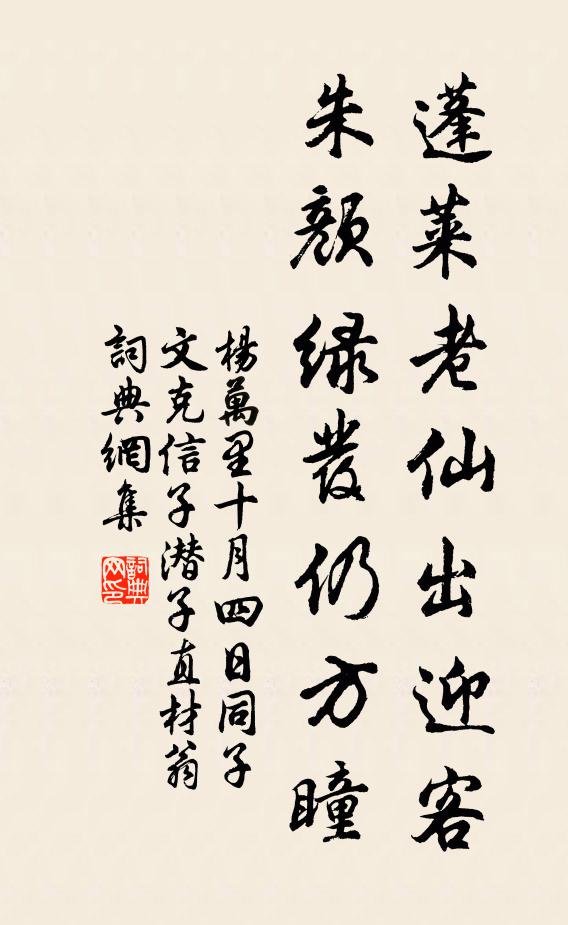 蓬萊老仙出迎客
朱顏緑發仍方瞳
楊萬里十月四日同子
文克信子潜子直材翁
詞典網集
詞典网印